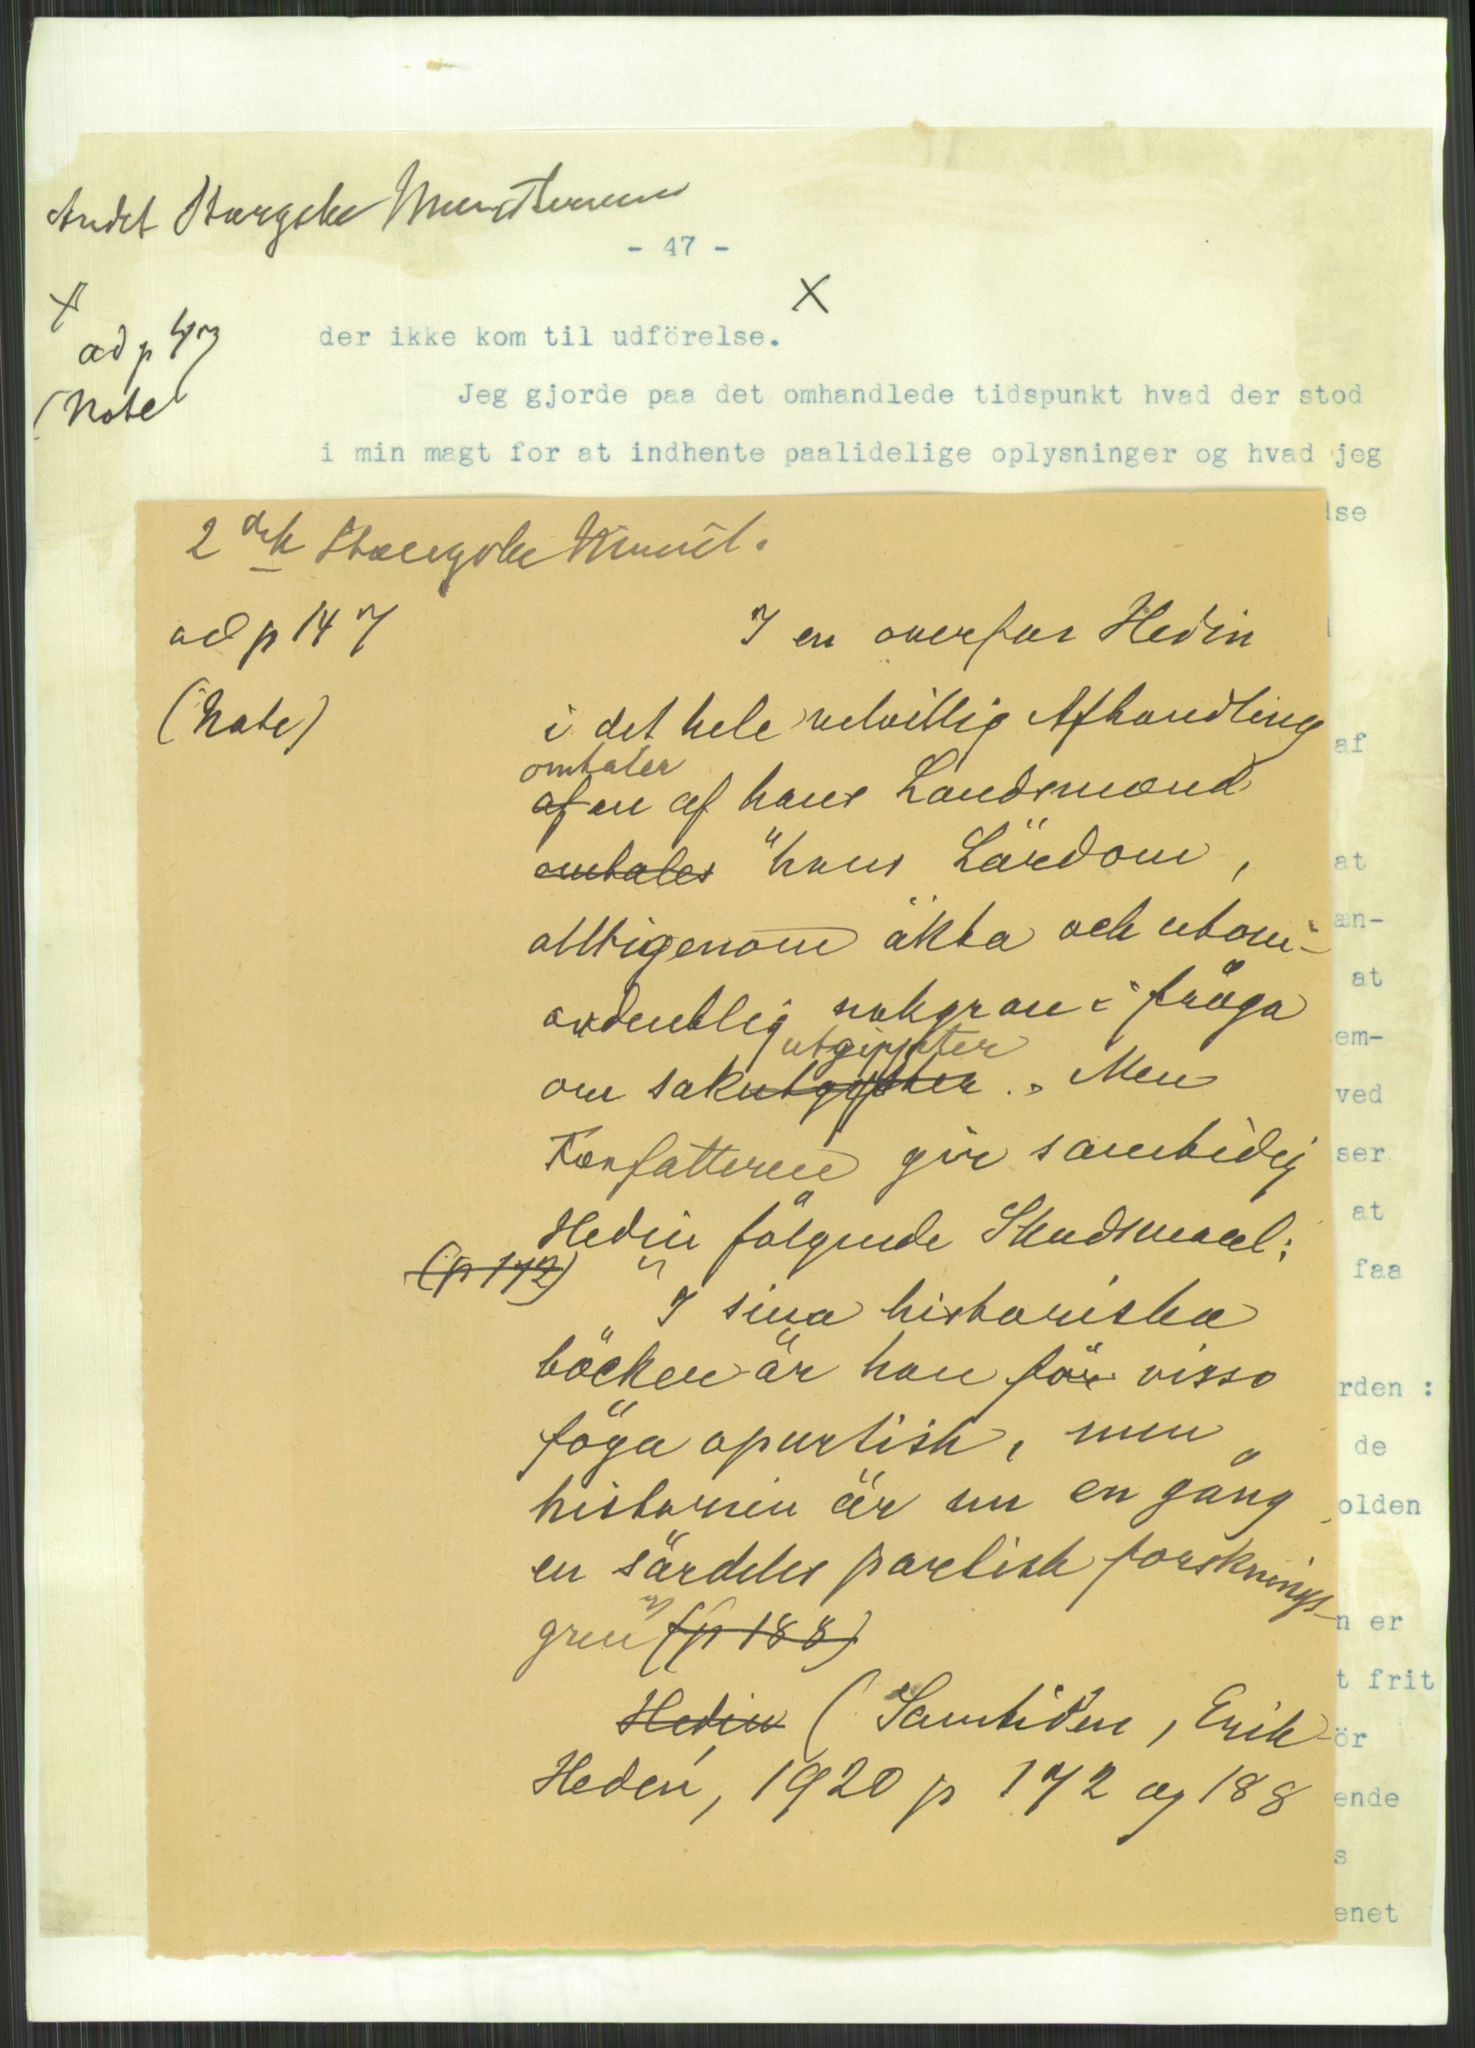 Andet Stangske Ministerium
- 47 -
X
X
ad p 47
(Note
der ikke kom til udförelse.
Jeg gjorde paa det omhandlede tidspunkt hvad der stod
i min magt for at indhente paalidelige oplysninger og hvad jeg
lse
2det Stangske Minist.
ad p 147
(Note)
I en overfor Hedin
i det hele velvillig Afhandling
omtaler
af en af hans Landsmænd
omtales "hans Lärdom,
alltigenom äkta och utom-
ordentlig nokgran i fråga
utgifter
om sakutgifter. Men
Forfatteren gir samtidig
Hedin følgende Skudsmaal:
(p 172)
"I sina historiska
böcker är han för visso
föga opartisk, men
historien är nu en gång
en särdeles partisk forsknings-
gren" (p 188)
Hedin (Samtiden, Erik
Hedén, 1920 p 172 og 188
af
at
æn-
at
em-
ved
ser
at
faa
rden :
de
olden
n er
t frit
ör
ende
s
enet